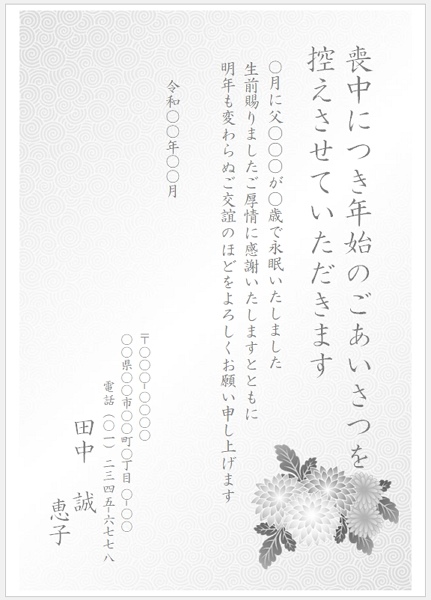 喪中につき年始のごあいさつを
控えさせていただきます
〇月に父〇〇〇が〇歳で永眠いたしました
生前賜りましたご厚情に感謝いたしますとともに
明年も変わらぬご交誼のほどをよろしくお願い申し上げます
令和〇〇年〇〇月
〒〇〇〇-〇〇〇〇
〇〇県〇〇市〇〇町〇丁目〇-〇〇
電話(〇一)二三四五-六七七八
田中 誠
恵子